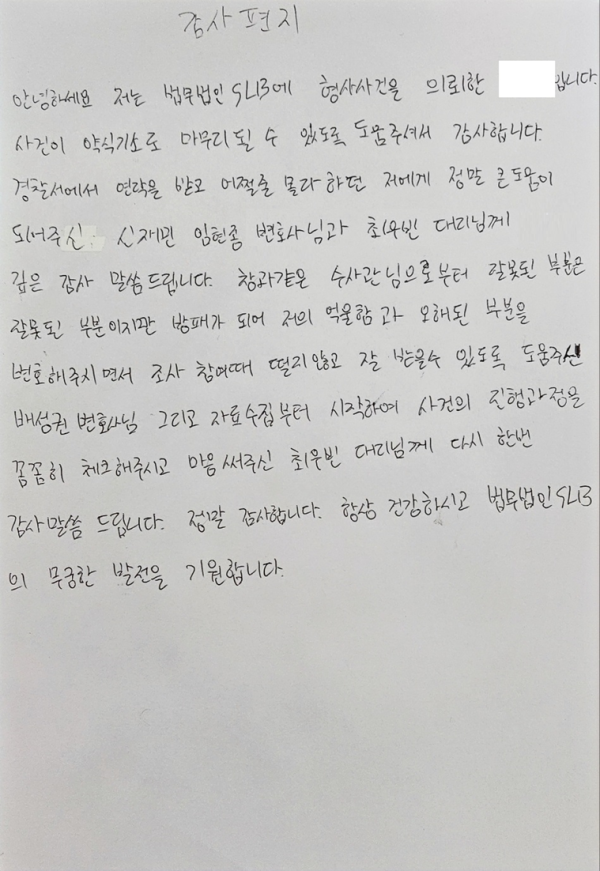 감사 편지
안녕하세요 저는 법무법인 SLB에 형사사건을 의뢰한 입니다.
사건이 약식기소로 마무리 될 수 있도록 도움주셔서 감사합니다.
경찰서에서 연락을 받고 어쩔줄 몰라 하던 저에게 정말 큰 도움이
되어주신 신재민 임현종 변호사님과 최우빈 대리님께
깊은 감사 말씀드립니다. 창과같은 수사관님으로부터 잘못된 부분은
잘못된 부분이지만 방패가 되어 저의 억울함과 오해된 부분을
변호해주지면서 조사 참여때 떨지않고 잘 받을수 있도록 도움주신
배성권 변호사님 그리고 자료수집부터 시작하여 사건의 진행과정을
꼼꼼히 체크해주시고 마음써주신 최우빈 대리님께 다시 한번
감사말씀 드립니다. 정말 감사합니다. 항상 건강하시고 법무법인 SLB
의 무궁한 발전을 기원합니다.